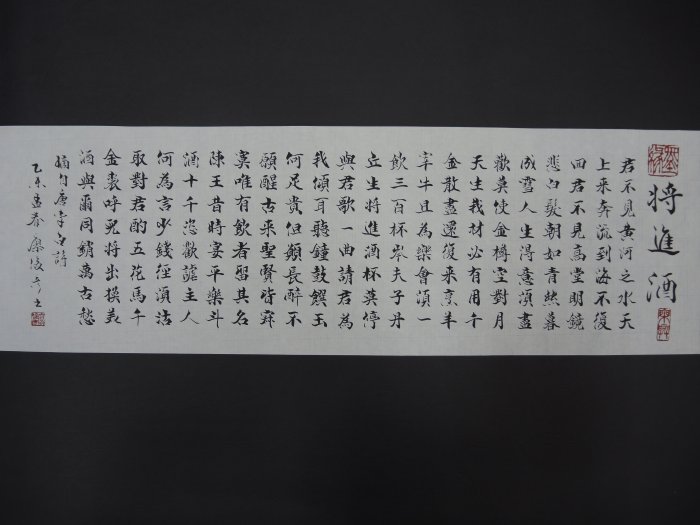 將進酒
君不見黃河之水天
上來奔流到海不復
回君不見高堂明鏡
悲白髮朝如青絲暮
成雪人生得意須盡
歡莫使金樽空對月
天生我材必有用千
金散盡還復來烹羊
宰牛且為樂會須一
飲三百杯岑夫子丹
丘生將進酒杯莫停
與君歌一曲請君為
我傾耳聽鐘鼓饌玉
何足貴但願長醉不
願醒古來聖賢皆寂
寞唯有飲者留其名
陳王昔時宴平樂斗
酒十千恣歡謔主人
何為言少錢徑須沽
取對君酌五花馬千
金裘呼兒將出換美
酒與爾同銷萬古愁
摘自唐李白詩
乙未孟春廖俊書